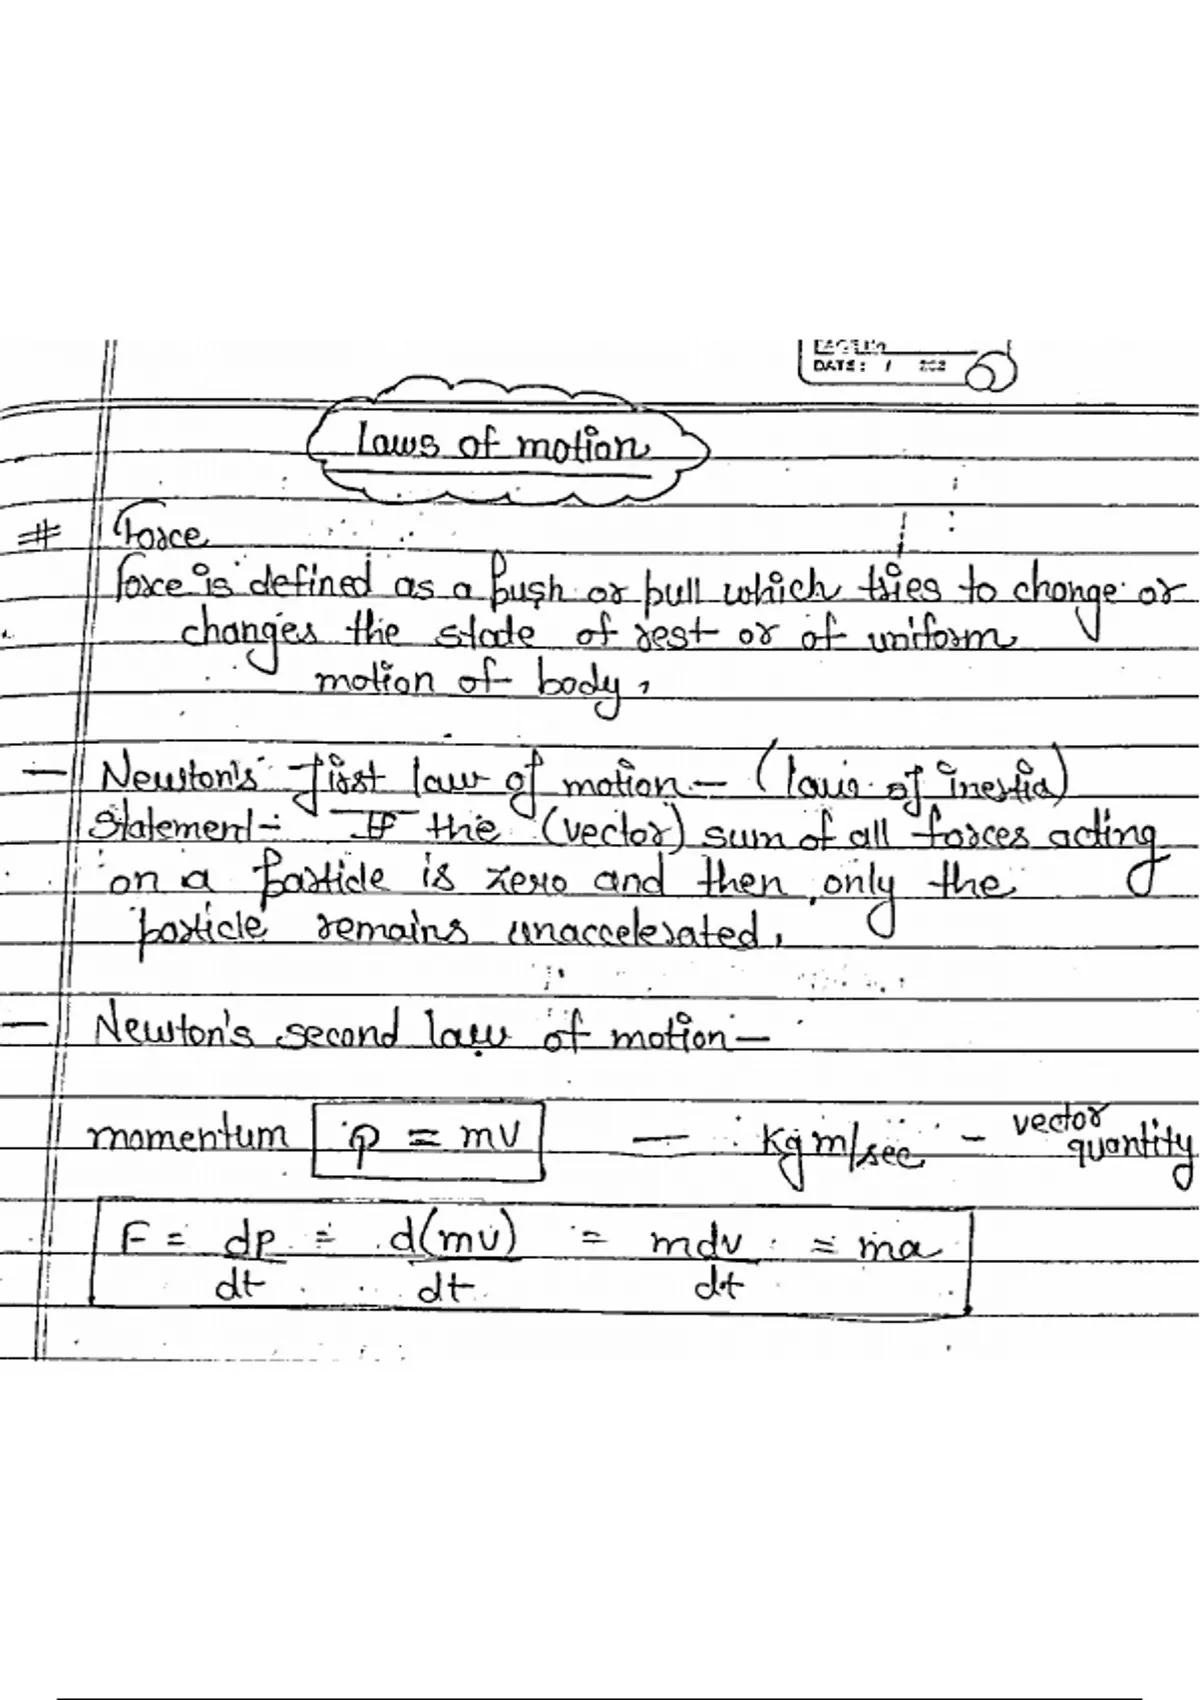 DATE: / 202
Laws of motion
# Force
Force is defined as a push or pull which tries to change or
changes the state of rest or of uniform
motion of body,
— Newton's first law of motion — (law of inertia)
Statement :- If the (vector) sum of all forces acting
on a particle is zero and then only the
particle remains unaccelerated,
— Newton's second law of motion —
momentum p = mv — Kg m/sec – vector quantity
F = dp/dt = d(mv)/dt = mdv/dt = ma